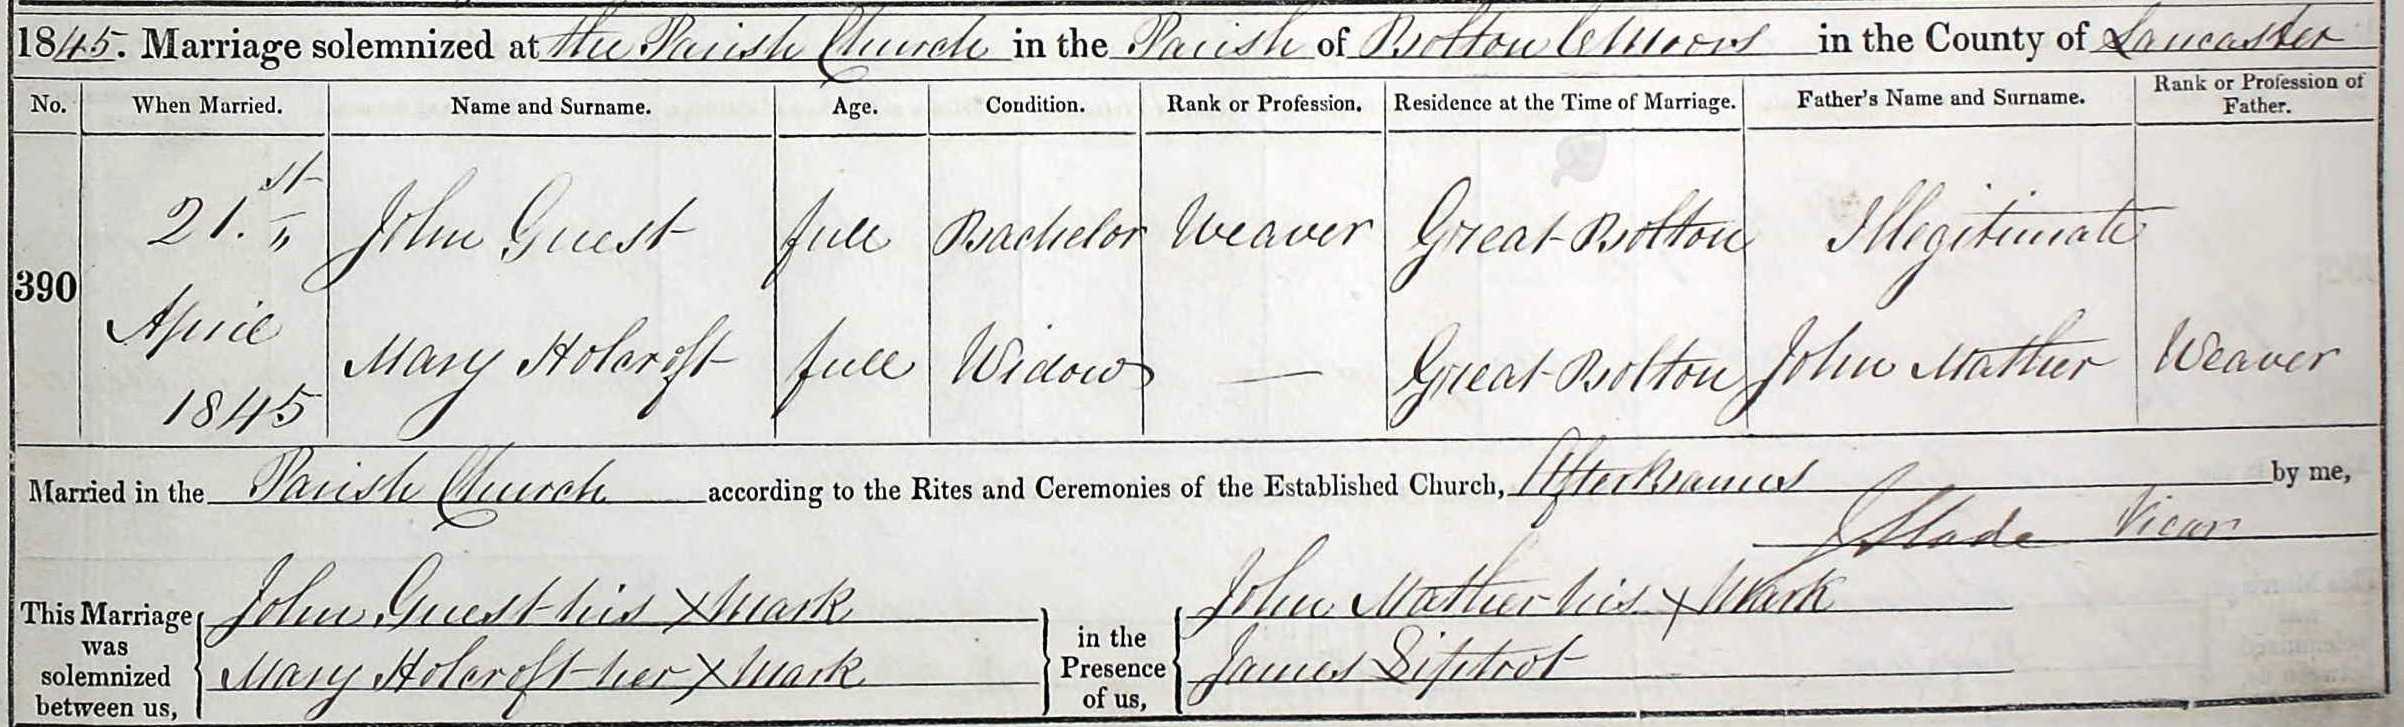 1845. Marriage solemnized at the Parish Church in the Parish of Bolton le Moors in the County of Lancaster
No. When Married. Name and Surname. Age. Condition. Rank or Profession. Residence at the Time of Marriage. Father's Name and Surname. Rank or Profession of Father.
390 21.st April 1845
John Guest full Bachelor Weaver Great Bolton Illegitimate
Mary Holcroft full Widow — Great Bolton John Mather Weaver
Married in the Parish Church according to the Rites and Ceremonies of the Established Church, After Banns by me,
J Slade Vicar
This Marriage was solemnized between us, John Guest his X Mark
Mary Holcroft her X Mark
in the Presence of us, John Mather his X Mark
James Siptrot